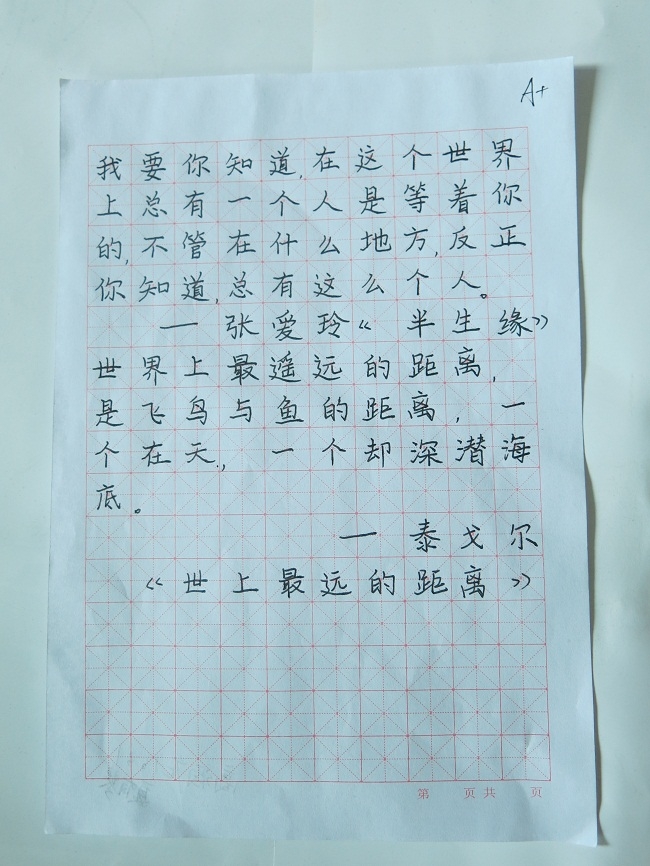 A+
我要你知道,在这个世界
上总有一个人是等着你
的,不管在什么地方,反正
你知道,总有这么个人。
— 张爱玲《半生缘》
世界上最遥远的距离,
是飞鸟与鱼的距离,一
个在天,一个却深潜海
底。
— 泰戈尔
《世上最远的距离》
第 页 共 页